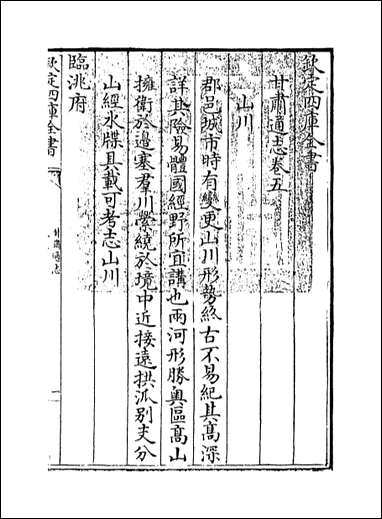 欽定四庫全書
甘肅通志卷五
山川
郡邑城市時有變更山川形勢終古不易紀其高深
詳其險易體國經野所宜講也兩河形勝奧區高山
擁衛於邊塞羣川縈繞於境中近接遠拱派別支分
山經水牒具載可考志山川
臨洮府
欽定四庫全書
甘肅通志
一